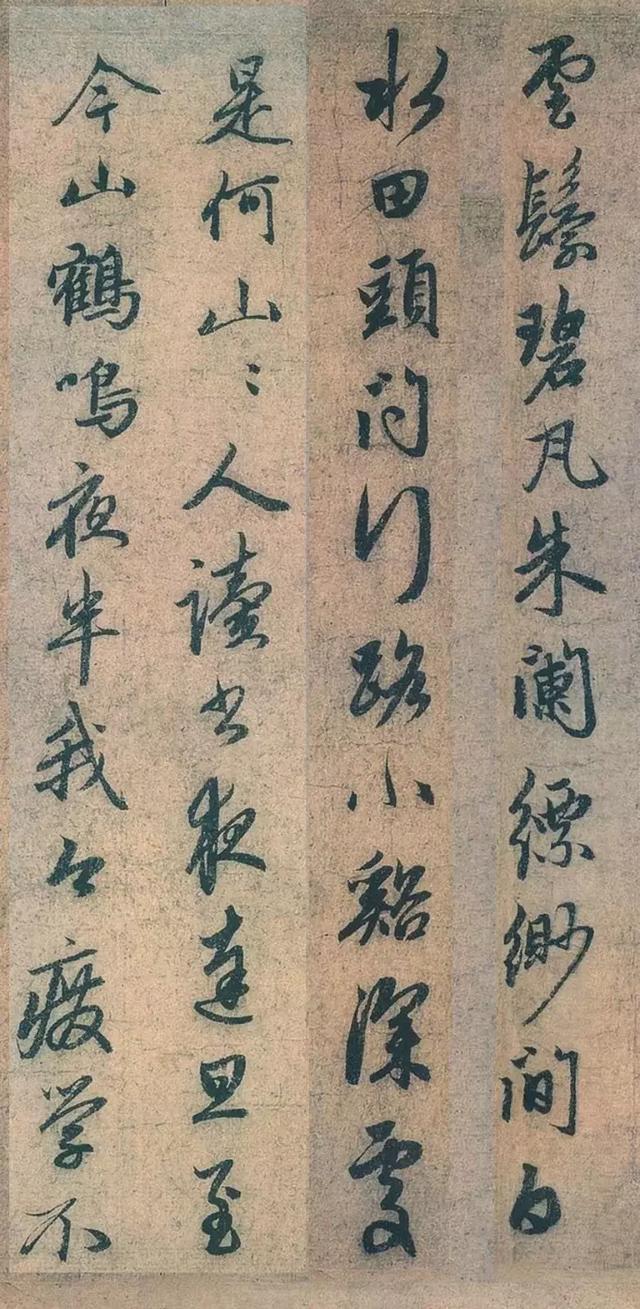 雲鬟碧瓦朱闌縹緲間白
水田頭問行路小谿深處
是何山〻人讀書夜達旦至
今山鶴鳴夜半我今癈学不